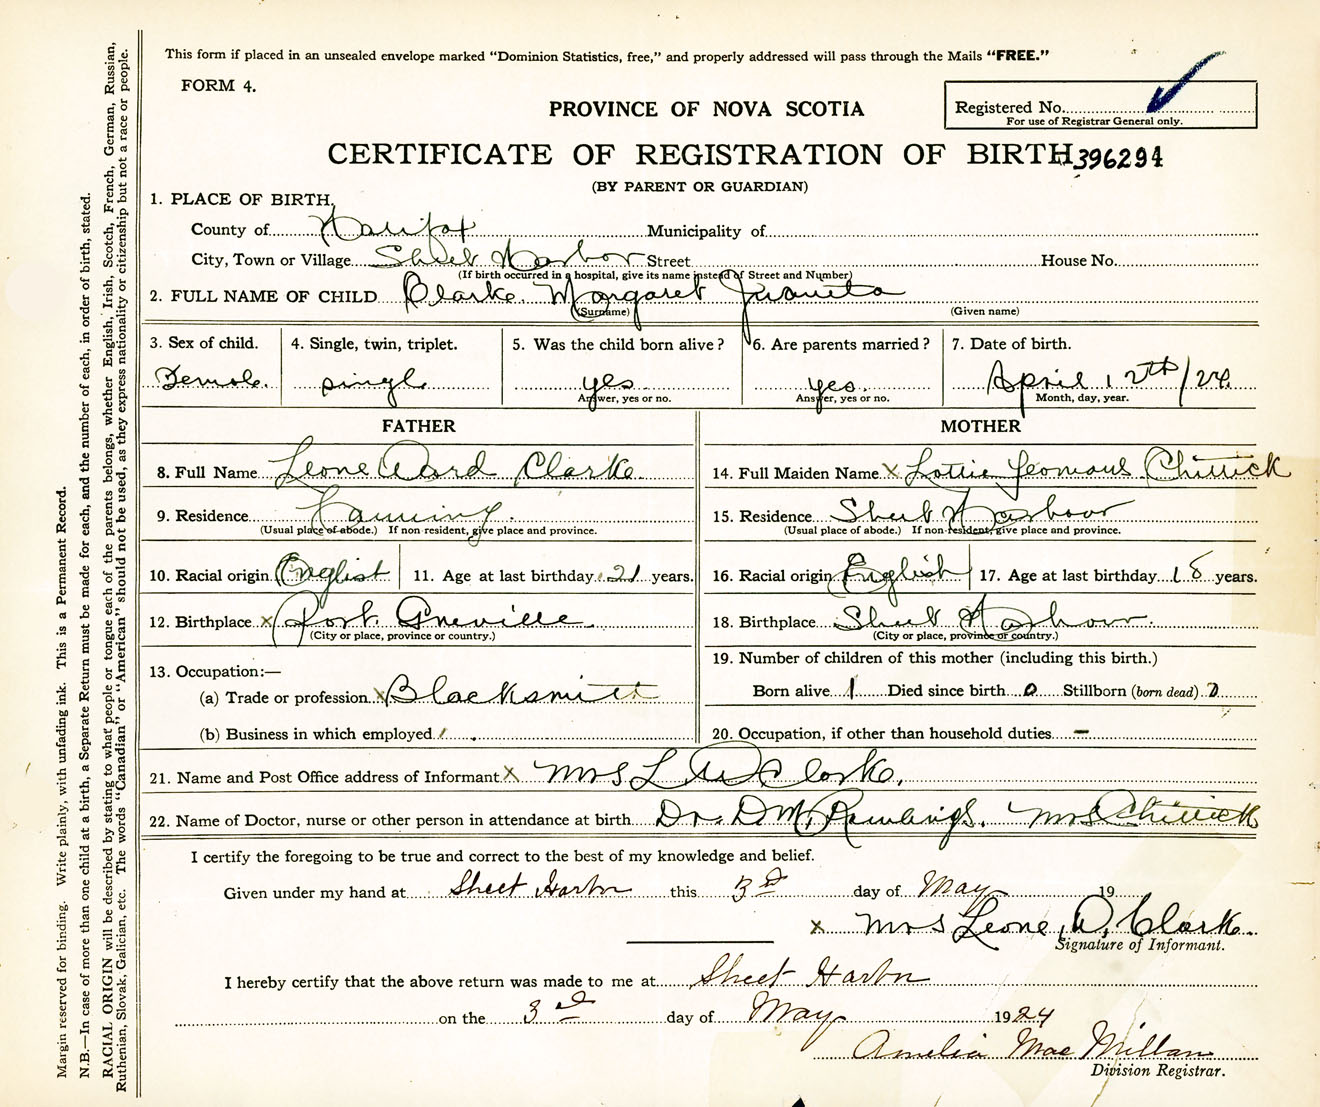 This form if placed in an unsealed envelope marked “Dominion Statistics, free,” and properly addressed will pass through the Mails “FREE.”
FORM 4.
Registered No.
For use of Registrar General only.
PROVINCE OF NOVA SCOTIA
CERTIFICATE OF REGISTRATION OF BIRTH 396294
(BY PARENT OR GUARDIAN)
1. PLACE OF BIRTH,
County of Halifax Municipality of
City, Town or Village Sheet Harbor Street House No.
(If birth occurred in a hospital, give its name instead of Street and Number)
2. FULL NAME OF CHILD Clarke. Margaret Juanita
(Surname) (Given name)
3. Sex of child. 4. Single, twin, triplet. 5. Was the child born alive? 6. Are parents married? 7. Date of birth.
Female. single yes yes. April 12th/24.
Answer, yes or no. Answer, yes or no. Month, day, year.
FATHER MOTHER
8. Full Name Leone Ward Clarke. 14. Full Maiden Name x Lottie Yeomans Chittick
9. Residence Canning. 15. Residence Sheet Harbour
(Usual place of abode.) If non-resident, give place and province. (Usual place of abode.) If non-resident, give place and province.
10. Racial origin English 11. Age at last birthday 21 years. 16. Racial origin English 17. Age at last birthday 18 years.
12. Birthplace x Port Greville 18. Birthplace Sheet Harbour.
(City or place, province or country.) (City or place, province or country.)
13. Occupation:— 19. Number of children of this mother (including this birth.)
(a) Trade or profession x Blacksmith Born alive 1 Died since birth 0 Stillborn (born dead)
(b) Business in which employed 20. Occupation, if other than household duties –
21. Name and Post Office address of Informant x Mrs L W Clarke.
22. Name of Doctor, nurse or other person in attendance at birth Dr. D. M. Rawlings. Mrs Chittick
I certify the foregoing to be true and correct to the best of my knowledge and belief.
Given under my hand at Sheet Harbor this 3rd day of May 19
x Mrs Leone W. Clark.
Signature of Informant.
I hereby certify that the above return was made to me at Sheet Harbor
on the 3rd day of May 1924
Amelia MacMillan
Division Registrar.
Margin reserved for binding. Write plainly, with unfading ink. This is a Permanent Record.
N.B.—In case of more than one child at a birth, a Separate Return must be made for each, and the number of each, in order of birth, stated.
RACIAL ORIGIN will be described by stating to what people or tongue each of the parents belongs, whether English, Irish, Scotch, French, German, Russian,
Ruthenian, Slovak, Galician, etc. The words “Canadian” or “American” should not be used, as they express nationality or citizenship but not a race or people.